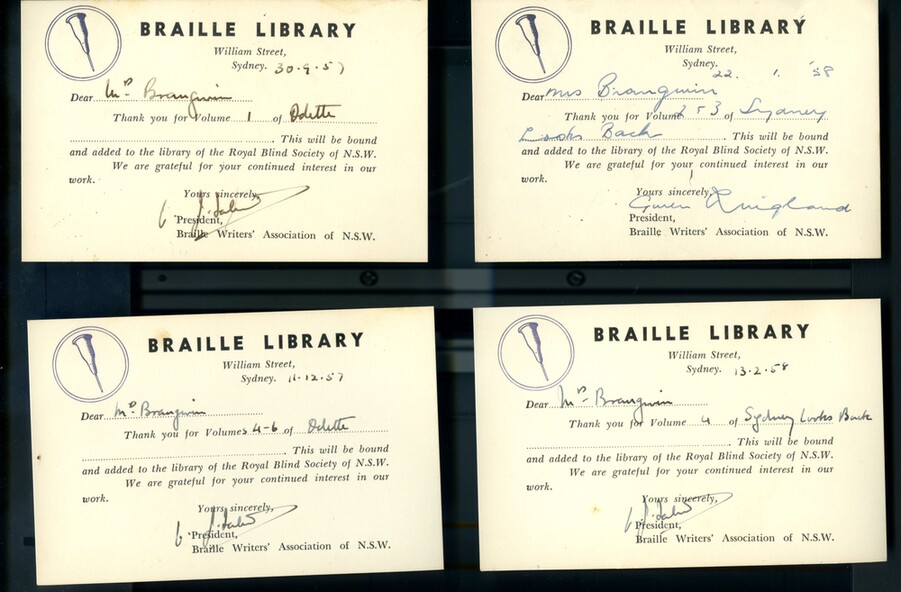 BRAILLE LIBRARY
William Street,
Sydney. 30.9.57
Dear Mrs Brangwin
Thank you for Volume 1 of Odette
. This will be bound
and added to the library of the Royal Blind Society of N.S.W.
We are grateful for your continued interest in our
work.
Yours sincerely,
President,
Braille Writers' Association of N.S.W.
BRAILLE LIBRARY
William Street,
Sydney. 22. 1. '58
Dear Mrs Brangwin
Thank you for Volume 2 & 3 of Sydney
Looks Back. This will be bound
and added to the library of the Royal Blind Society of N.S.W.
We are grateful for your continued interest in our
work.
Yours sincerely,
Gwen
President,
Braille Writers' Association of N.S.W.
BRAILLE LIBRARY
William Street,
Sydney. 11.12.57
Dear Mrs Brangwin
Thank you for Volumes 4-6 of Odette
. This will be bound
and added to the library of the Royal Blind Society of N.S.W.
We are grateful for your continued interest in our
work.
Yours sincerely,
President,
Braille Writers' Association of N.S.W.
BRAILLE LIBRARY
William Street,
Sydney. 13.2.58
Dear Mrs Brangwin
Thank you for Volume 4 of Sydney Looks Back
. This will be bound
and added to the library of the Royal Blind Society of N.S.W.
We are grateful for your continued interest in our
work.
Yours sincerely,
President,
Braille Writers' Association of N.S.W.